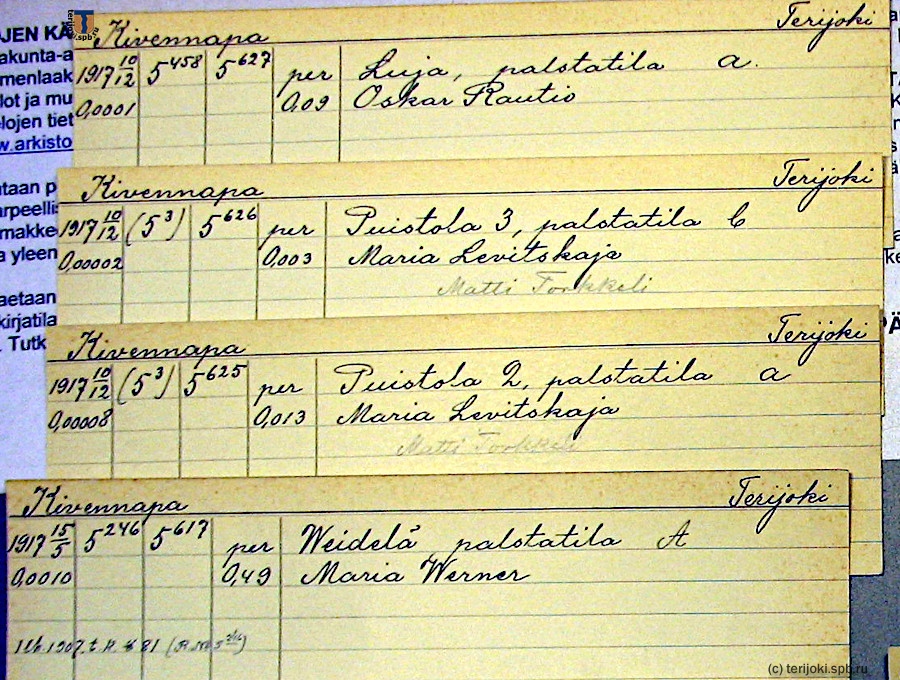 Kivennapa Terijoki
1917 10/12 5 458 5 627 per Luja, palstatila a.
0,0001 0,09 Oskar Rautio
Kivennapa Terijoki
1917 10/12 (5 3) 5 626 per Puistola 3, palstatila C
0,00002 0,003 Maria Levitskaja
Matti Torkkeli
Kivennapa Terijoki
1917 10/12 (5 3) 5 625 per Puistola 2, palstatila a
0,00008 0,013 Maria Levitskaja
Matti Torkkeli
Kivennapa Terijoki
1917 15/5 5 246 5 617 per Weidelä palstatila A
0,0010 0,49 Maria Werner
1907
OJEN KÄ
akunta-a
menlaak
lot ja mu
elojen tiet
w.arkisto
taan p
arpeellis
makke
a yleen
aetaan
kirjatila
. Tutk
(c) terijoki.spb.ru